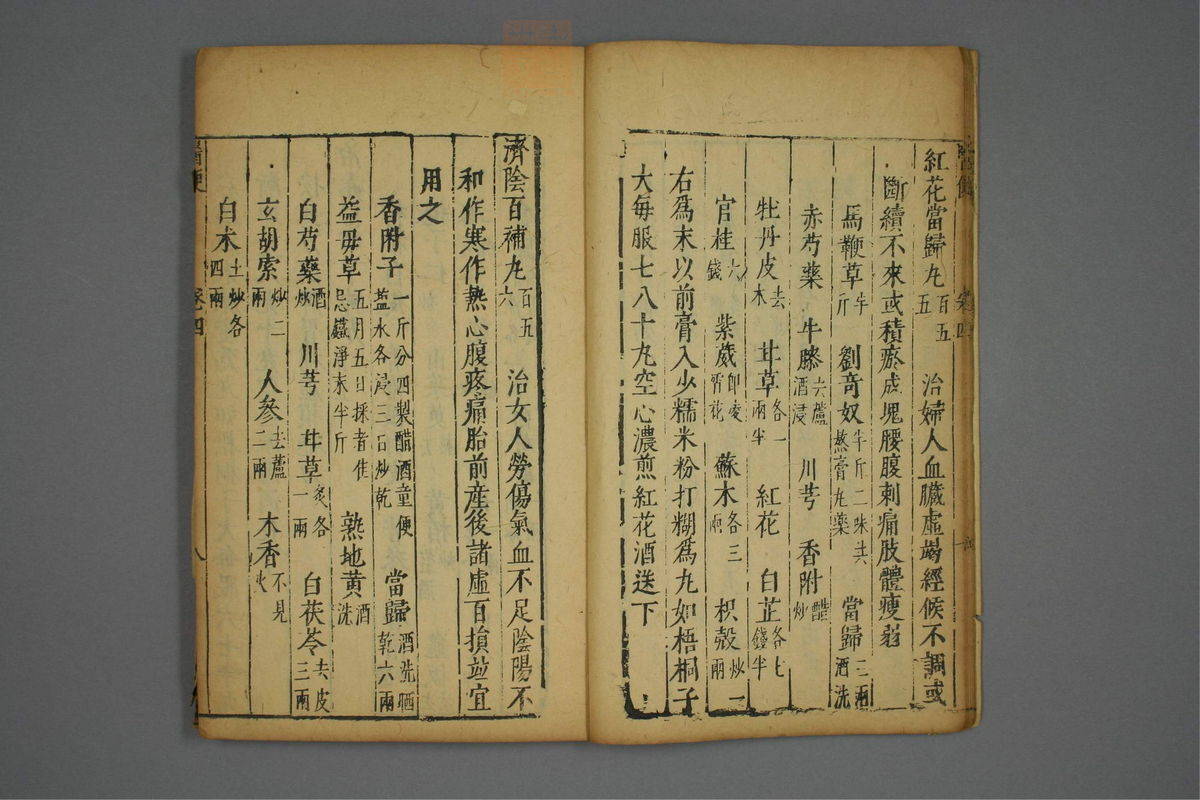 紅花當歸丸百五五 治婦人血臟虛竭經候不調或
斷續不來或積瘀成塊腰腹刺痛肢體瘦弱
馬鞭草半斤 劉竒奴半斤二味共熬膏丸藥 當歸三兩酒洗
赤芍藥 牛膝去蘆酒浸 川芎 香附醋炒
牡丹皮去木 甘草各一兩半 紅花 白芷各七錢半
官桂六錢 紫葳即凌霄花 蘇木各三兩 枳殼炒一兩
右爲末以前膏入少糯米粉打糊爲丸如梧桐子
大每服七八十丸空心濃煎紅花酒送下
濟陰百補丸百五六 治女人勞傷氣血不足陰陽不
和作寒作熱心腹疼痛胎前産後諸虛百損並宜
用之
香附子一斤分四製醋酒童便盐水各浸三日炒乾 當歸酒洗晒乾六兩
益母草五月五日採者佳忌鐵淨末半斤 熟地黄酒洗
白芍藥酒炒 川芎 甘草炙各一兩 白茯苓去皮三兩
玄胡索炒二兩 人參去蘆二兩 木香不見火
白术土炒各四兩
卷四
八